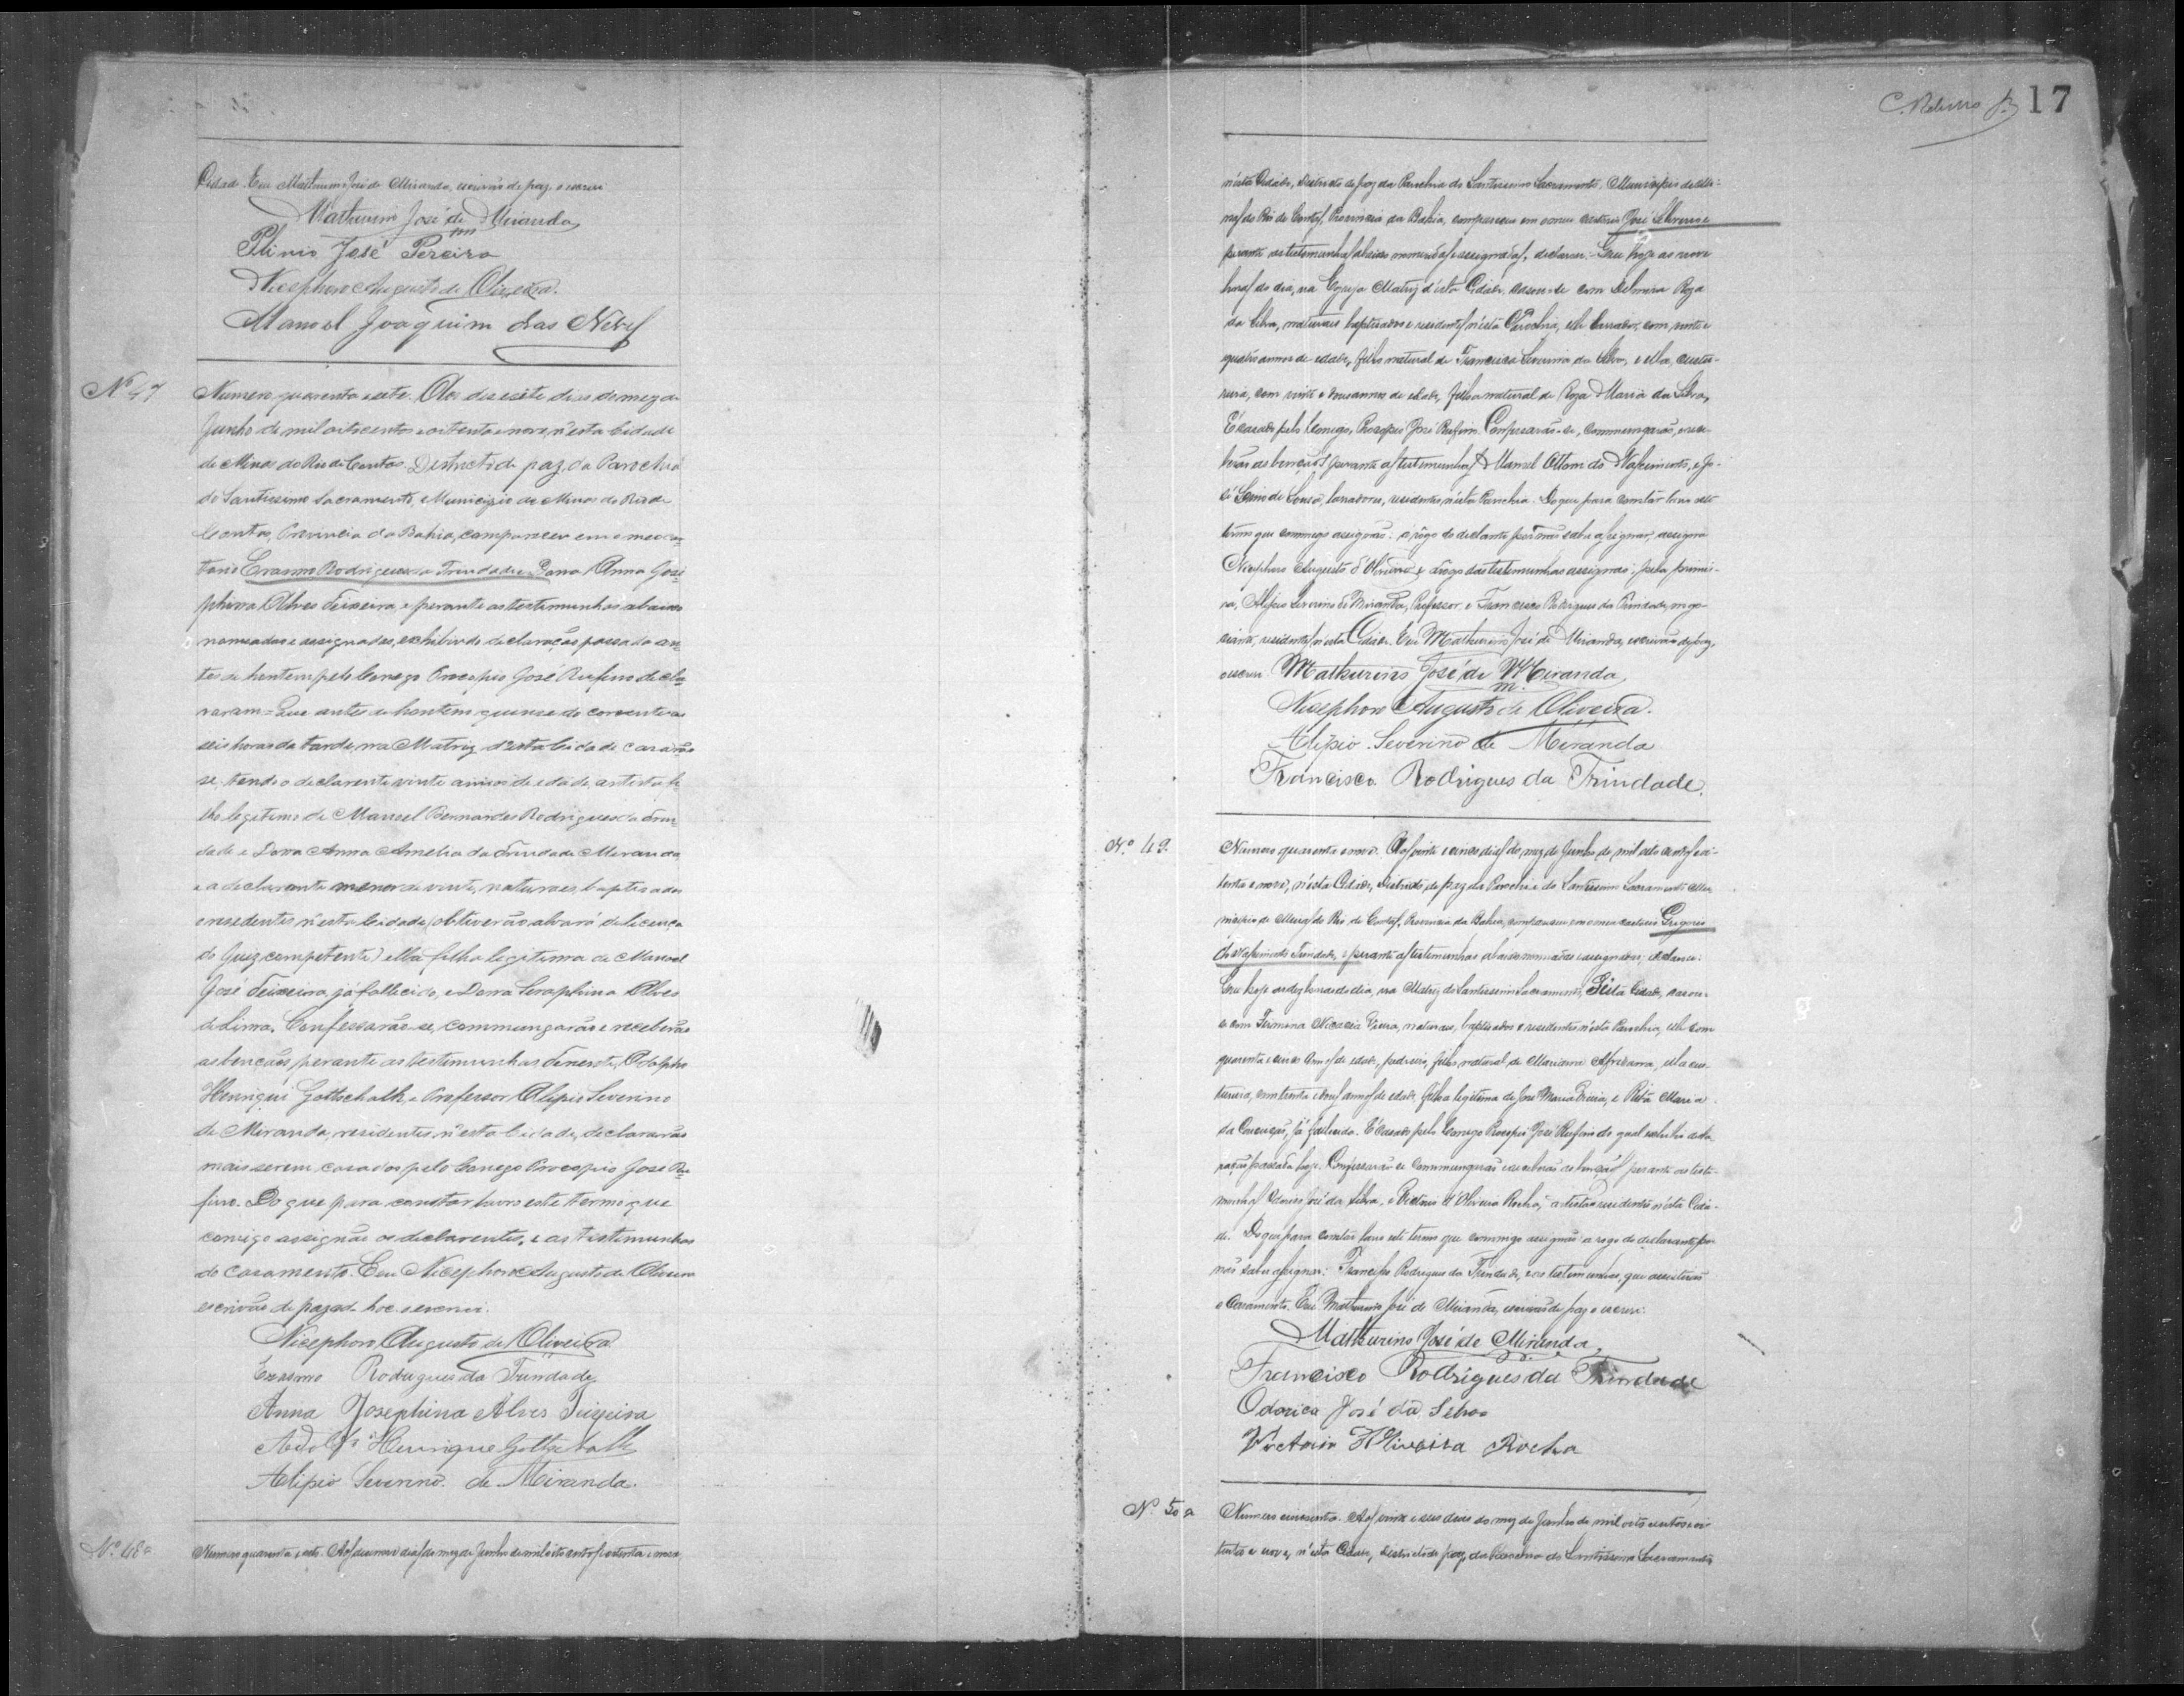 Cidade. Eu Mathurino José de Miranda, escrivão de paz, o escrevi
Mathurino José de Miranda
Plinio José Pereira
Nicephoro Augusto de Oliveira.
Manoel Joaquim das Neves
Nº 47
Numero quarenta e sete. Aos desesete dias do mez de
Junho de mil oitocentos e oitenta e nove, n'esta Cidade
de Minas do Rio de Contas. Destricto de paz, da Parochia
do Santissimo Sacramento, e Municipio de Minas do Rio de
Contas, Provincia da Bahia, compareceu em o meo car-
torio Erasmo Rodrigues da Trindade e Dona Anna Jose-
phina Alves Teixeira, e perante as testemunhas abaixo
nomeadas e assignadas, exhibindo declaração passada an-
tes de hontem pelo Conego Procopio José Rufino decla-
raram = Que antes de hontem quinse do corrente as
seis horas da tarde, na Matriz d'esta Cidade casarão
se, tendo o declarante vinte annos de edade, artista fi-
lho legitimo de Manoel Bernardes Rodrigues da Trin-
dade e Dona Anna Amelia da Trindade Miranda
e a declarante menor de vinte, naturaes, baptisados
e residentes n'esta Cidade (obtiverão alvará de licença
do Juiz competente) ella filha legitima de Manoel
José Teixeira, já fallecido, e Dona Seraphina Alves
de Lima. Confessarão-se, commungarão e receberão
as bençãos perante as testemunhas Tenente Adolpho
Henrique Gottschalk, e Professor Alipio Severino
de Miranda, residentes n'esta Cidade, declararão
mais serem casados pelo Conego Procopio José Ru-
fino. Do que para constar lavro este termo que
comigo assignão os declarantes, e as testemunhas
do casamento. Eu Nicephoro Augusto de Oliveira
escrivão de paz ad-hoc o escrevi.
Nicephoro Augusto de Oliveira
Erasmo Rodrigues da Trindade
Anna Josephina Alves Teixeira
Adolpho Henrique Gottschalk
Alipio Severino de Miranda.
Nº 48
Numero quarenta e oito. Aos desenove dias do mez de Junho de mil oito centos e oitenta e nove,
17
n'esta Cidade, Districto de paz da Parochia do Santissimo Sacramento, Municipio de Mi-
nas do Rio de Contas, Provincia da Bahia, compareceu em o meu cartorio José
perante as testemunhas abaixo nomeadas e assignadas, declarou: Que hoje as nove
horas do dia, na Egreja Matriz d'esta Cidade, casou-se com Roza
da Silva, naturaes baptisados e residentes n'esta Parochia, elle lavrador, com vinte e
quatro annos de edade, filho natural de Francisca Severina da Silva, e ella, custu-
reira, com vinte e annos de edade, filha natural de Roza Maria da Silva,
E' casado pelo Conego, Procopio José Rufino. Confessarão-se, commungarão, e rece-
berão as bençãos perante as testemunhas Manoel do Nascimento, e Jo-
sé de Souza, lavradores, residentes n'esta Parochia. Do que para constar lavro este
termo que commigo assignão: a rôgo do declarante por não saber assignar, assigna
Nicephoro Augusto d'Oliveira e a rôgo das testemunhas assignão: pela primei-
ra, Alipio Severino de Miranda, Professor, e Francisco Rodrigues da Trindade, nego-
ciante, residentes n'esta Cidade. Eu Mathurino José de Miranda, escrivão de paz,
o escrevi Mathurino José de Miranda
Nicephoro Augusto de Oliveira.
Alipio Severino de Miranda
Francisco Rodrigues da Trindade.
Nº 49.
Numero quarenta e nove. Aos vinte e cinco dias do mez de Junho de mil oito centos e oi-
tenta e nove, n'esta Cidade, Districto de paz da Parochia do Santissimo Sacramento Mu-
nicipio de Minas do Rio de Contas, Provincia da Bahia, compareceu em o meu cartorio Gregorio
do Nascimento Trindade, e perante as testemunhas abaixo nomeadas e assignadas, declarou:
Que hoje as dez horas do dia, na Matriz do Santissimo Sacramento, d'esta Cidade, casou-
se com Firmina Nicacia Vieira, naturaes, baptisados e residentes n'esta Parochia, elle com
quarenta e annos de edade, pedreiro, filho natural de Marianna Africana, ella cus-
tureira, com trinta e annos de edade, filha legitima de José Maria Vieira, e Rita Maria
da Conceição, já fallecida. E' casado pelo Conego Procopio José Rufino do qual exhibio decla-
ração passada hoje. Confessarão-se commungarão e receberão as bençãos perante as teste-
munhas Odorico José da Silva, e Victorio d'Oliveira Rocha, artistas residentes n'esta Cida-
de. Do que para constar lavro este termo que commigo assignão a rogo do declarante por
não saber assignar: Francisco Rodrigues da Trindade, e as testemunhas, que assistirão
o Casamento. Eu Mathurino José de Miranda, escrivão de paz o escrevi:
Mathurino José de Miranda,
Francisco Rodrigues da Trindade
Odorico José da Silva
Victorio d'Oliveira Rocha
Nº 50
Numero cincoenta. Aos vinte e seis dias do mez de Junho de mil oito centos e oi-
tenta e nove, n'esta Cidade, Districto de paz, da Parochia do Santissimo Sacramento,